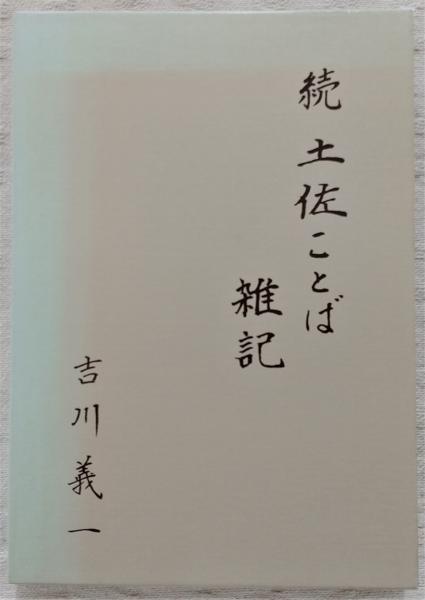 続 土佐ことば
雑記
吉川義一